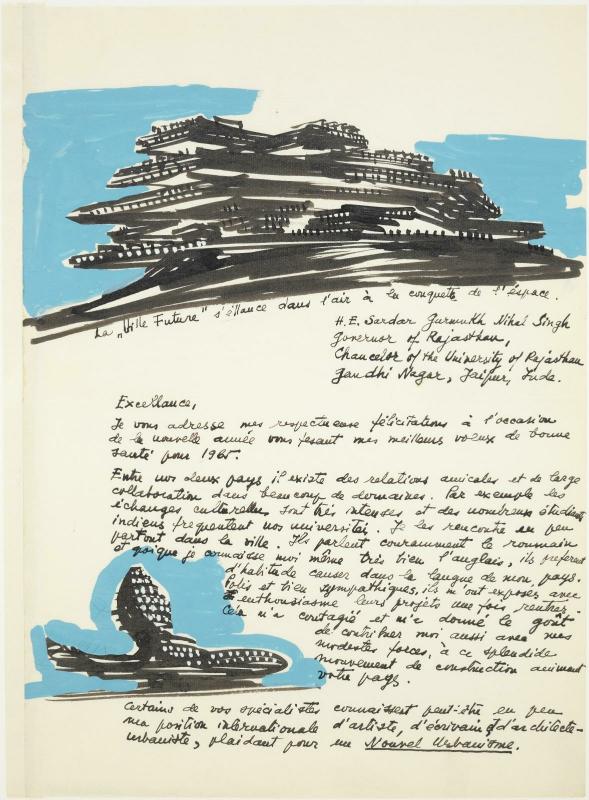 La „Ville Future" s'éllance dans l'air à la conquête de l'éspace.
H.E. Sardar Gurmukh Nihal Singh
Governor of Rajasthan,
Chancelor of the University of Rajasthan
Gandhi Nagar, Jaipur, Inde.
Excellance,
Je vous adresse mes respectueuse félicitations à l'occasion
de la nouvelle année vous fesant mes meilleurs voeux de bonne
santé pour 1965.
Entre nos deux pays il existe des relations amicales et de large
collaboration dans beaucoup de domaines. Par exemple les
échanges culturelles sont très intenses et des nombreux étudiants
indiens frequentent nos universités. Je les rencontre un peu
partout dans la ville. Ils parlent couramment le roumain
et poique je connaisse moi même très bien l'anglais, ils préferent
d'habitude causer dans la langue de mon pays.
Polis et bien sympathiques, ils m'ont exposés avec
enthousiasme leurs projets une fois rentrer.
Cela m'a contagié et m'a donné le goût
de contribuer moi aussi avec mes
modestes forces, à ce splendide
mouvement de construction animant
votre pays.
Certains de vos spécialistes connaissent peut-être un peu
ma position internationale d'artiste, d'écrivain et d'architecte-
urbaniste, plaidant pour un Nouvel Urbanisme.